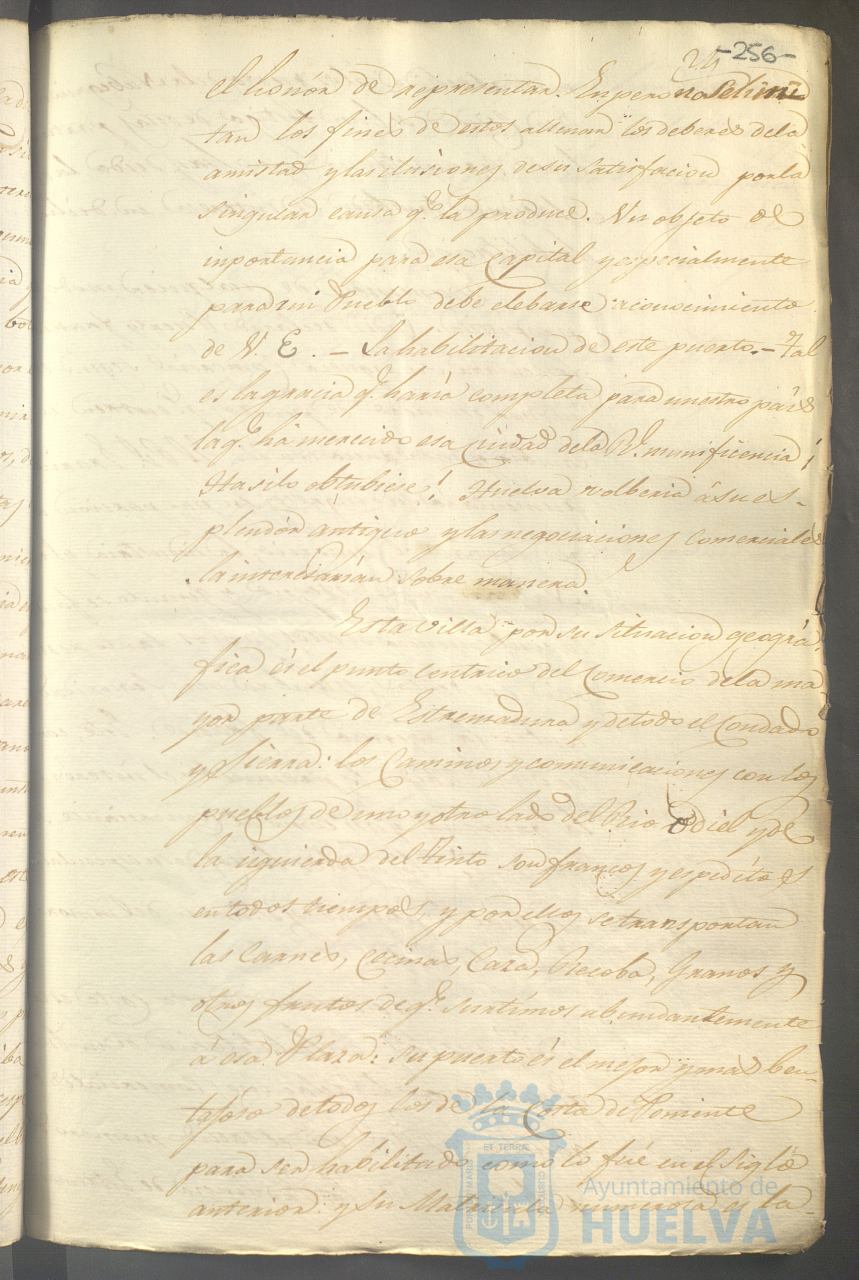 24 -256-
el honór de representar. Enpero no se limi
tan los fines de estos allenar los deberes dela
amistad y las ilusiones de su satisfacion por la
singular causa q.e la produce. Un objeto de
inportancia para esa Capital y especialmente
para mi Pueblo debe elebarse aconocimiento
de V. E. - La habilitacion de este puerto. - Tal
es la gracia q.e haría completa para nuestro país
la q.e há merecido esa Ciudad dela R.l munificencia ¡
Ha si lo obtubiese! Huelva volberia á su es-
plendór antiguo y las negociaciones comerciales
la interesarían sobre manera.
Esta villa por su situacion geográ-
fica és el punto centrico del Comercio dela ma-
yor parte de Estremadura y de todo el Condado
y Sierra: los Caminos y comunicaciones con los
pueblos de uno y otro lado del Rio Odiel y de
la izquierda del Tinto son francos y espeditos
en todos tiempos, y por ellos se transportan
las Carnes, Cecinas, Caza, Recoba, Granos y
otros frutos de q.e surtimos abundantemente
á esa Plaza: su puerto és el mejor y mas ben-
tajoso de todos los de la Costa de Poniente
para ser habilitado como lo fué en el Siglo
anterior: y su Matricula numerosa es la
Ayuntamiento de
HUELVA